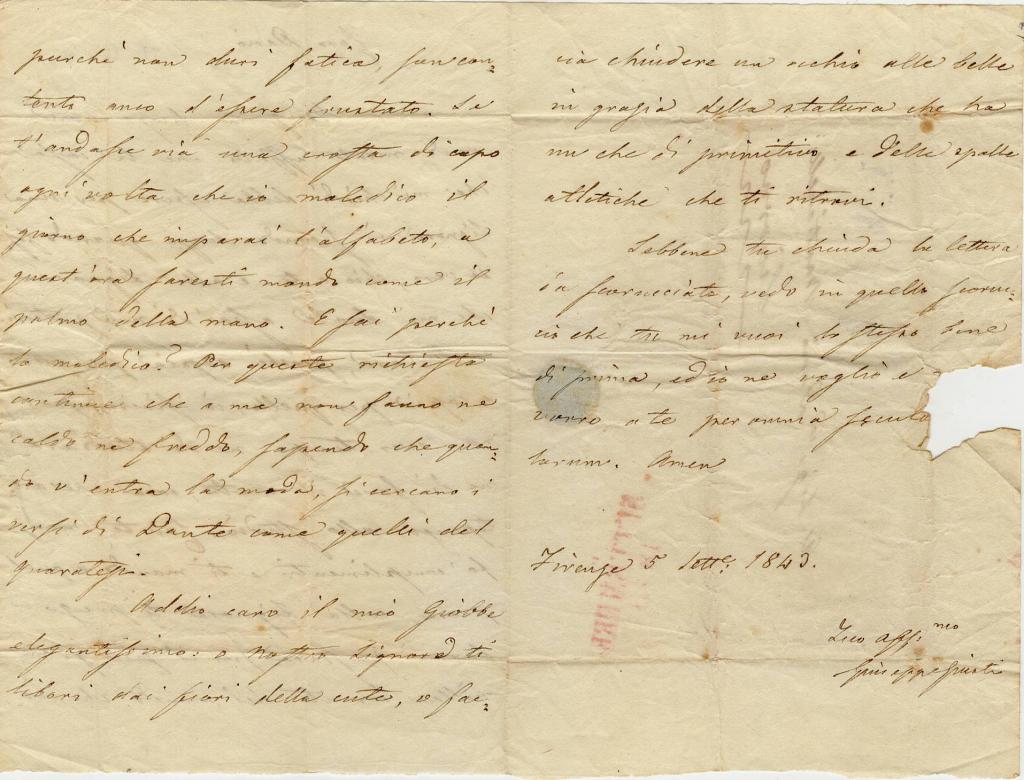 purchè non duri fatica, son con=
tenti anco d'essere frustato. Se
t'andasse via una crosta di capo
ogni volta che io maledico il
giorno che imparai l'alfabeto, a
quest'ora saresti mondo come il
palmo della mano. E sai perchè
lo maledico? Per queste richieste
continue che a me non fanno ne
caldo ne freddo, sapendo che quan=
do v'entra la moda, si cercano i
versi di Dante come quelli del
guaratesi.
Addio caro il mio Giobbe
elegantissimo: o nostro Signore ti
liberi dai fiori della cute, o fac=
cia chiudere un occhio alle belle
in grazia della statura che ha
un che di primitivo e delle spalle
atletiche che ti ritrovi.
Sebbene tu chiuda la lettera
da scorucciato, vedo in quello scoruc=
cio che tu mi vuoi lo stesso bene
di prima, ed io ne voglio e
vorrò a te per omnia secula
lorum. Amen
Firenze 5 Sett.e 1843.
Tuo Aff.mo
Giuseppe Giusti